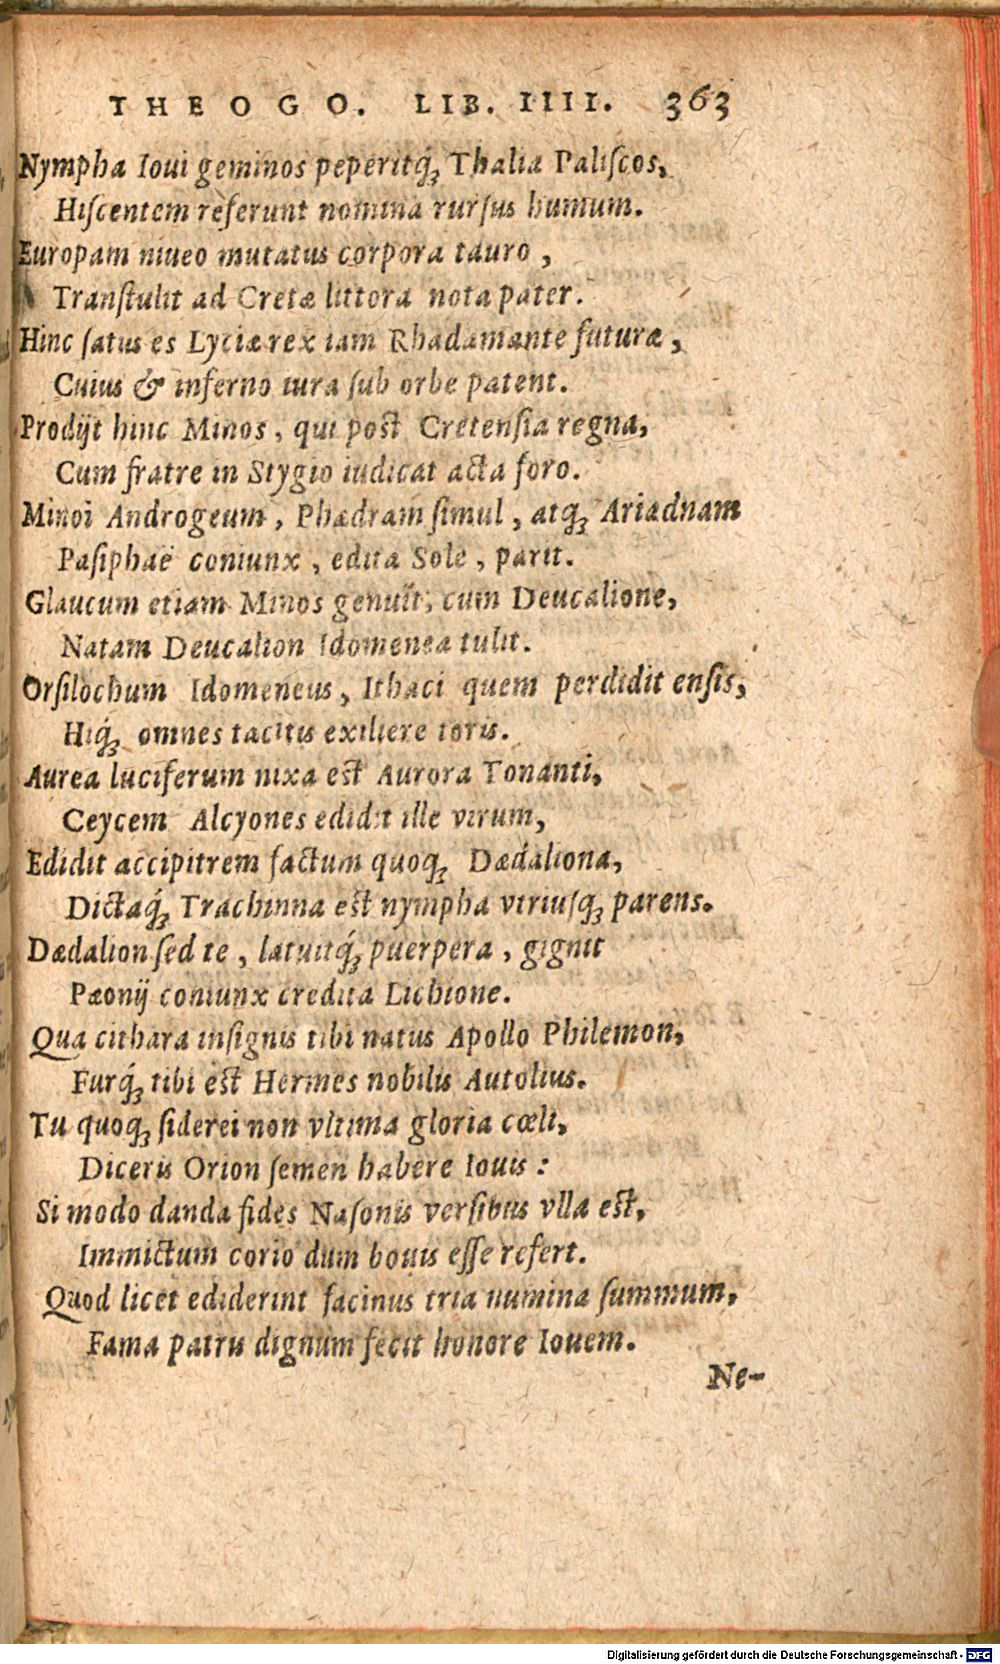 THEOGO. LIB. IIII. 363
Nympha Ioui geminos peperitq́ꝫ Thalia Paliſcos,
Hiſcentem referunt nomina rurſus humum.
Europam niueo mutatus corpora tauro,
Tranſtulit ad Cretæ littora nota pater.
Hinc ſatus es Lyciæ rex iam Rhadamante futuræ,
Cuius & inferno iura ſub orbe patent.
Prodijt hinc Minos, qui poſt Cretenſia regna,
Cum fratre in Stygio iudicat acta foro.
Minoi Androgeum, Phædram ſimul, atqꝫ Ariadnam
Paſiphaë coniunx, edita Sole, parit.
Glaucum etiam Minos genuit, cum Deucalione,
Natam Deucalion Idomenea tulit.
Orſilochum Idomeneus, Ithaci quem perdidit enſis,
Hiq́ꝫ omnes tacitis exiliere toris.
Aurea luciferum nixa eſt Aurora Tonanti,
Ceycem Alcyones edidit ille virum,
Edidit accipitrem factum quoqꝫ Dædaliona,
Dictaq́ꝫ Trachinna eſt nympha vtriuſqꝫ parens.
Dædalion ſed te, latuitq́ꝫ puerpera, gignit
Pæonij coniunx credita Lichione.
Qua cithara inſignis tibi natus Apollo Philemon,
Furq́ꝫ tibi eſt Hermes nobilis Autolius.
Tu quoqꝫ ſiderei non vltima gloria cœli,
Diceris Orion ſemen habere Iouis:
Si modo danda fides Naſonis verſibus vlla eſt,
Immictum corio dum bouis eſſe refert.
Quod licet ediderint facinus tria numina ſummum,
Fama patris dignum fecit honore Iouem.
Ne-
Digitalisierung gefördert durch die Deutsche Forschungsgemeinschaft - DFG